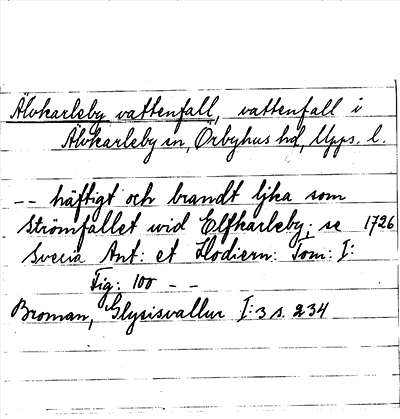 Älvkarleby vattenfall, vattenfall i
Älvkarleby sn, Örbyhus hd, Upps. l.
-- häftigt och brandt ljka som
Strömfallet wid Elfkarleby; se 1726
Svecia Ant: et Hodiern: Tom: I:
Fig: 100 - -
Broman, Glysisvallur I:3 s. 234